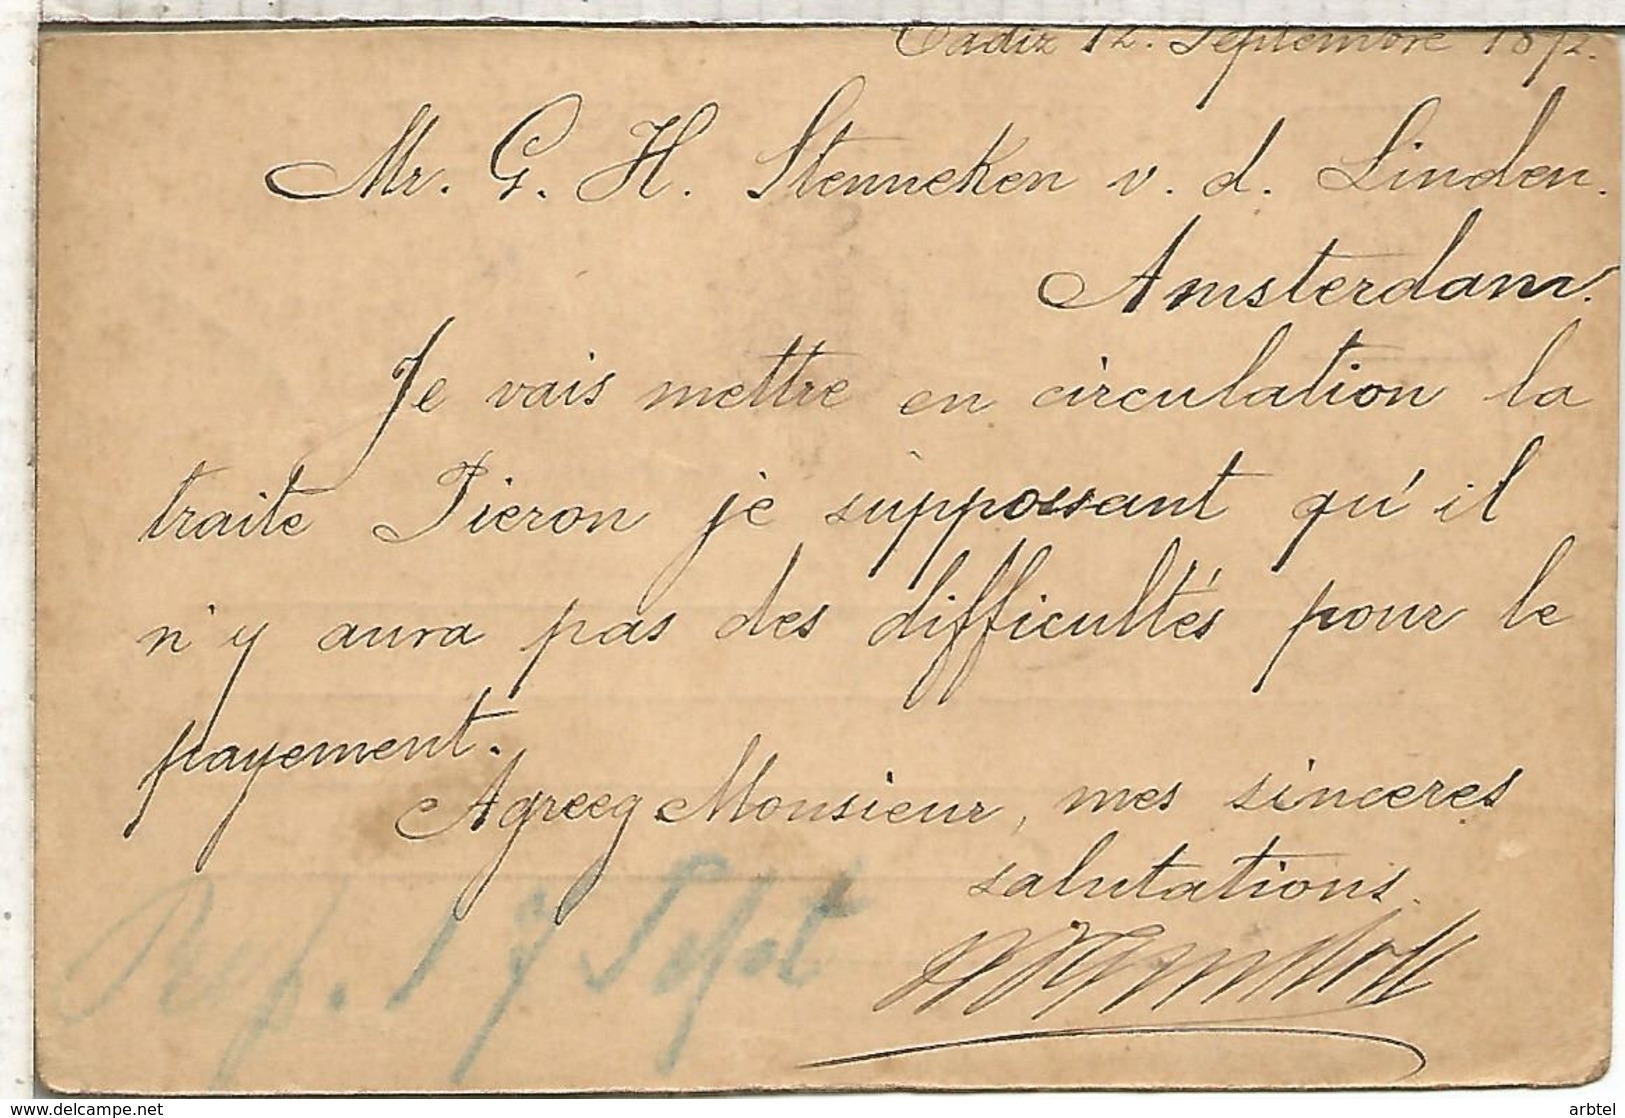 Cadiz 12. Septembre 1892.
Mr. G. H. Stenneken v. d. Linden.
Amsterdam.
Je vais mettre en circulation la
traite Pieron je supposant qu'il
n'y aura pas des difficultés pour le
payement.
Agreez Monsieur, mes sinceres
salutations.
17 Sept
www.delcampe.net
arbtel